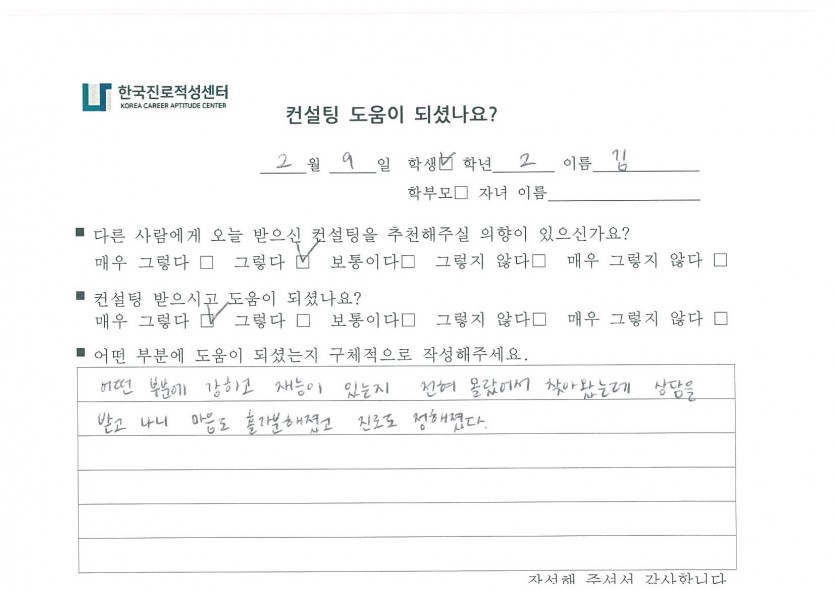 한국진로적성센터
KOREA CAREER APTITUDE CENTER
컨설팅 도움이 되셨나요?
2 월 9 일 학생☑ 학년 2 이름 김
학부모□ 자녀 이름
■ 다른 사람에게 오늘 받으신 컨설팅을 추천해주실 의향이 있으신가요?
매우 그렇다 □ 그렇다 ☑ 보통이다□ 그렇지 않다□ 매우 그렇지 않다 □
■ 컨설팅 받으시고 도움이 되셨나요?
매우 그렇다 ☑ 그렇다 □ 보통이다□ 그렇지 않다□ 매우 그렇지 않다 □
■ 어떤 부분에 도움이 되셨는지 구체적으로 작성해주세요.
어떤 부분에 강하고 재능이 있는지 전혀 몰랐어서 찾아왔는데 상담을
받고 나니 마음도 홀가분해졌고 진로도 정해졌다.
작성해 주셔서 감사합니다